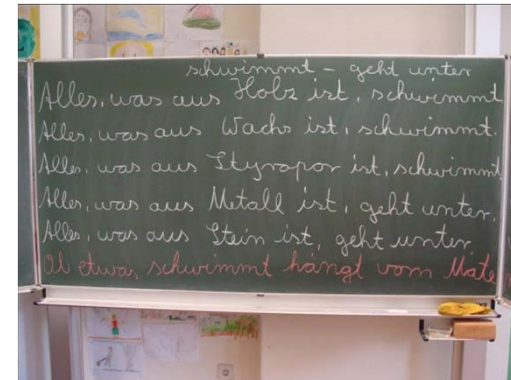 schwimmt – geht unter
Alles, was aus Holz ist, schwimmt
Alles, was aus Wachs ist, schwimmt.
Alles, was aus Styropor ist, schwimmt
Alles, was aus Metall ist, geht unter.
Alles, was aus Stein ist, geht unter.
Ob etwas schwimmt hängt vom Mate